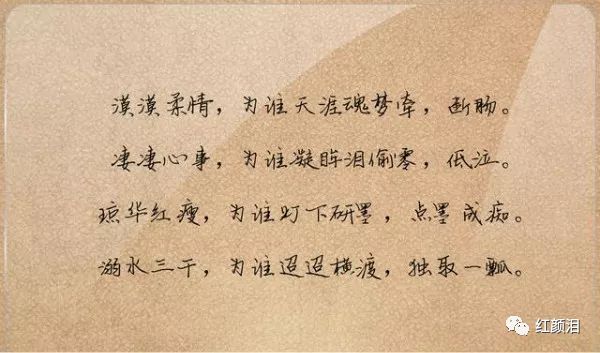 漠漠柔情，为谁天涯魂梦牵，断肠。
凄凄心事，为谁凝眸泪偷零，低泣。
琼华红瘦，为谁灯下研墨，点墨成痴。
溺水三千，为谁迢迢横渡，独取一瓢。
红颜泪